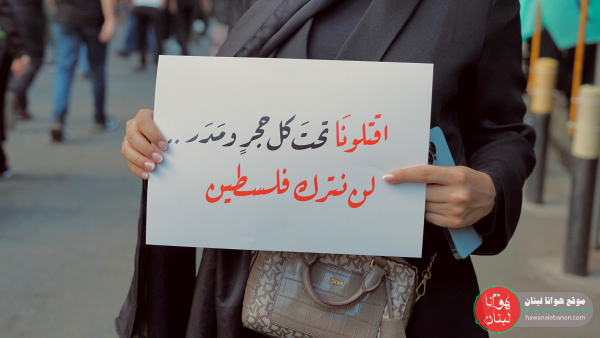 اقتلونَا تحتَ كل حجرٍ ومَدَر ..
لن نترك فلسطين
DKNY
موقع هوانا لبنان
hawanalebanon.com
هوانا
لبنان